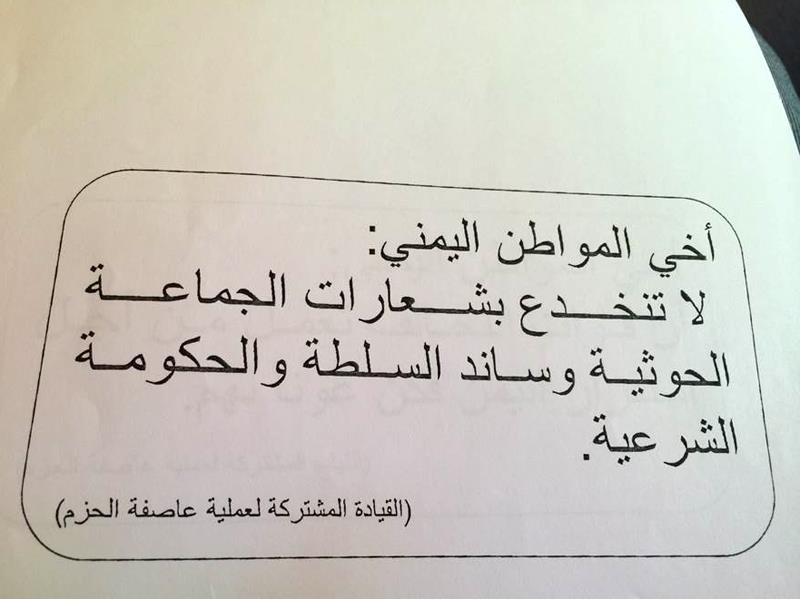 أخي المواطن اليمني:
لا تنخدع بشعارات الجماعة
الحوثية وساند السلطة والحكومة
الشرعية.
(القيادة المشتركة لعملية عاصفة الحزم)